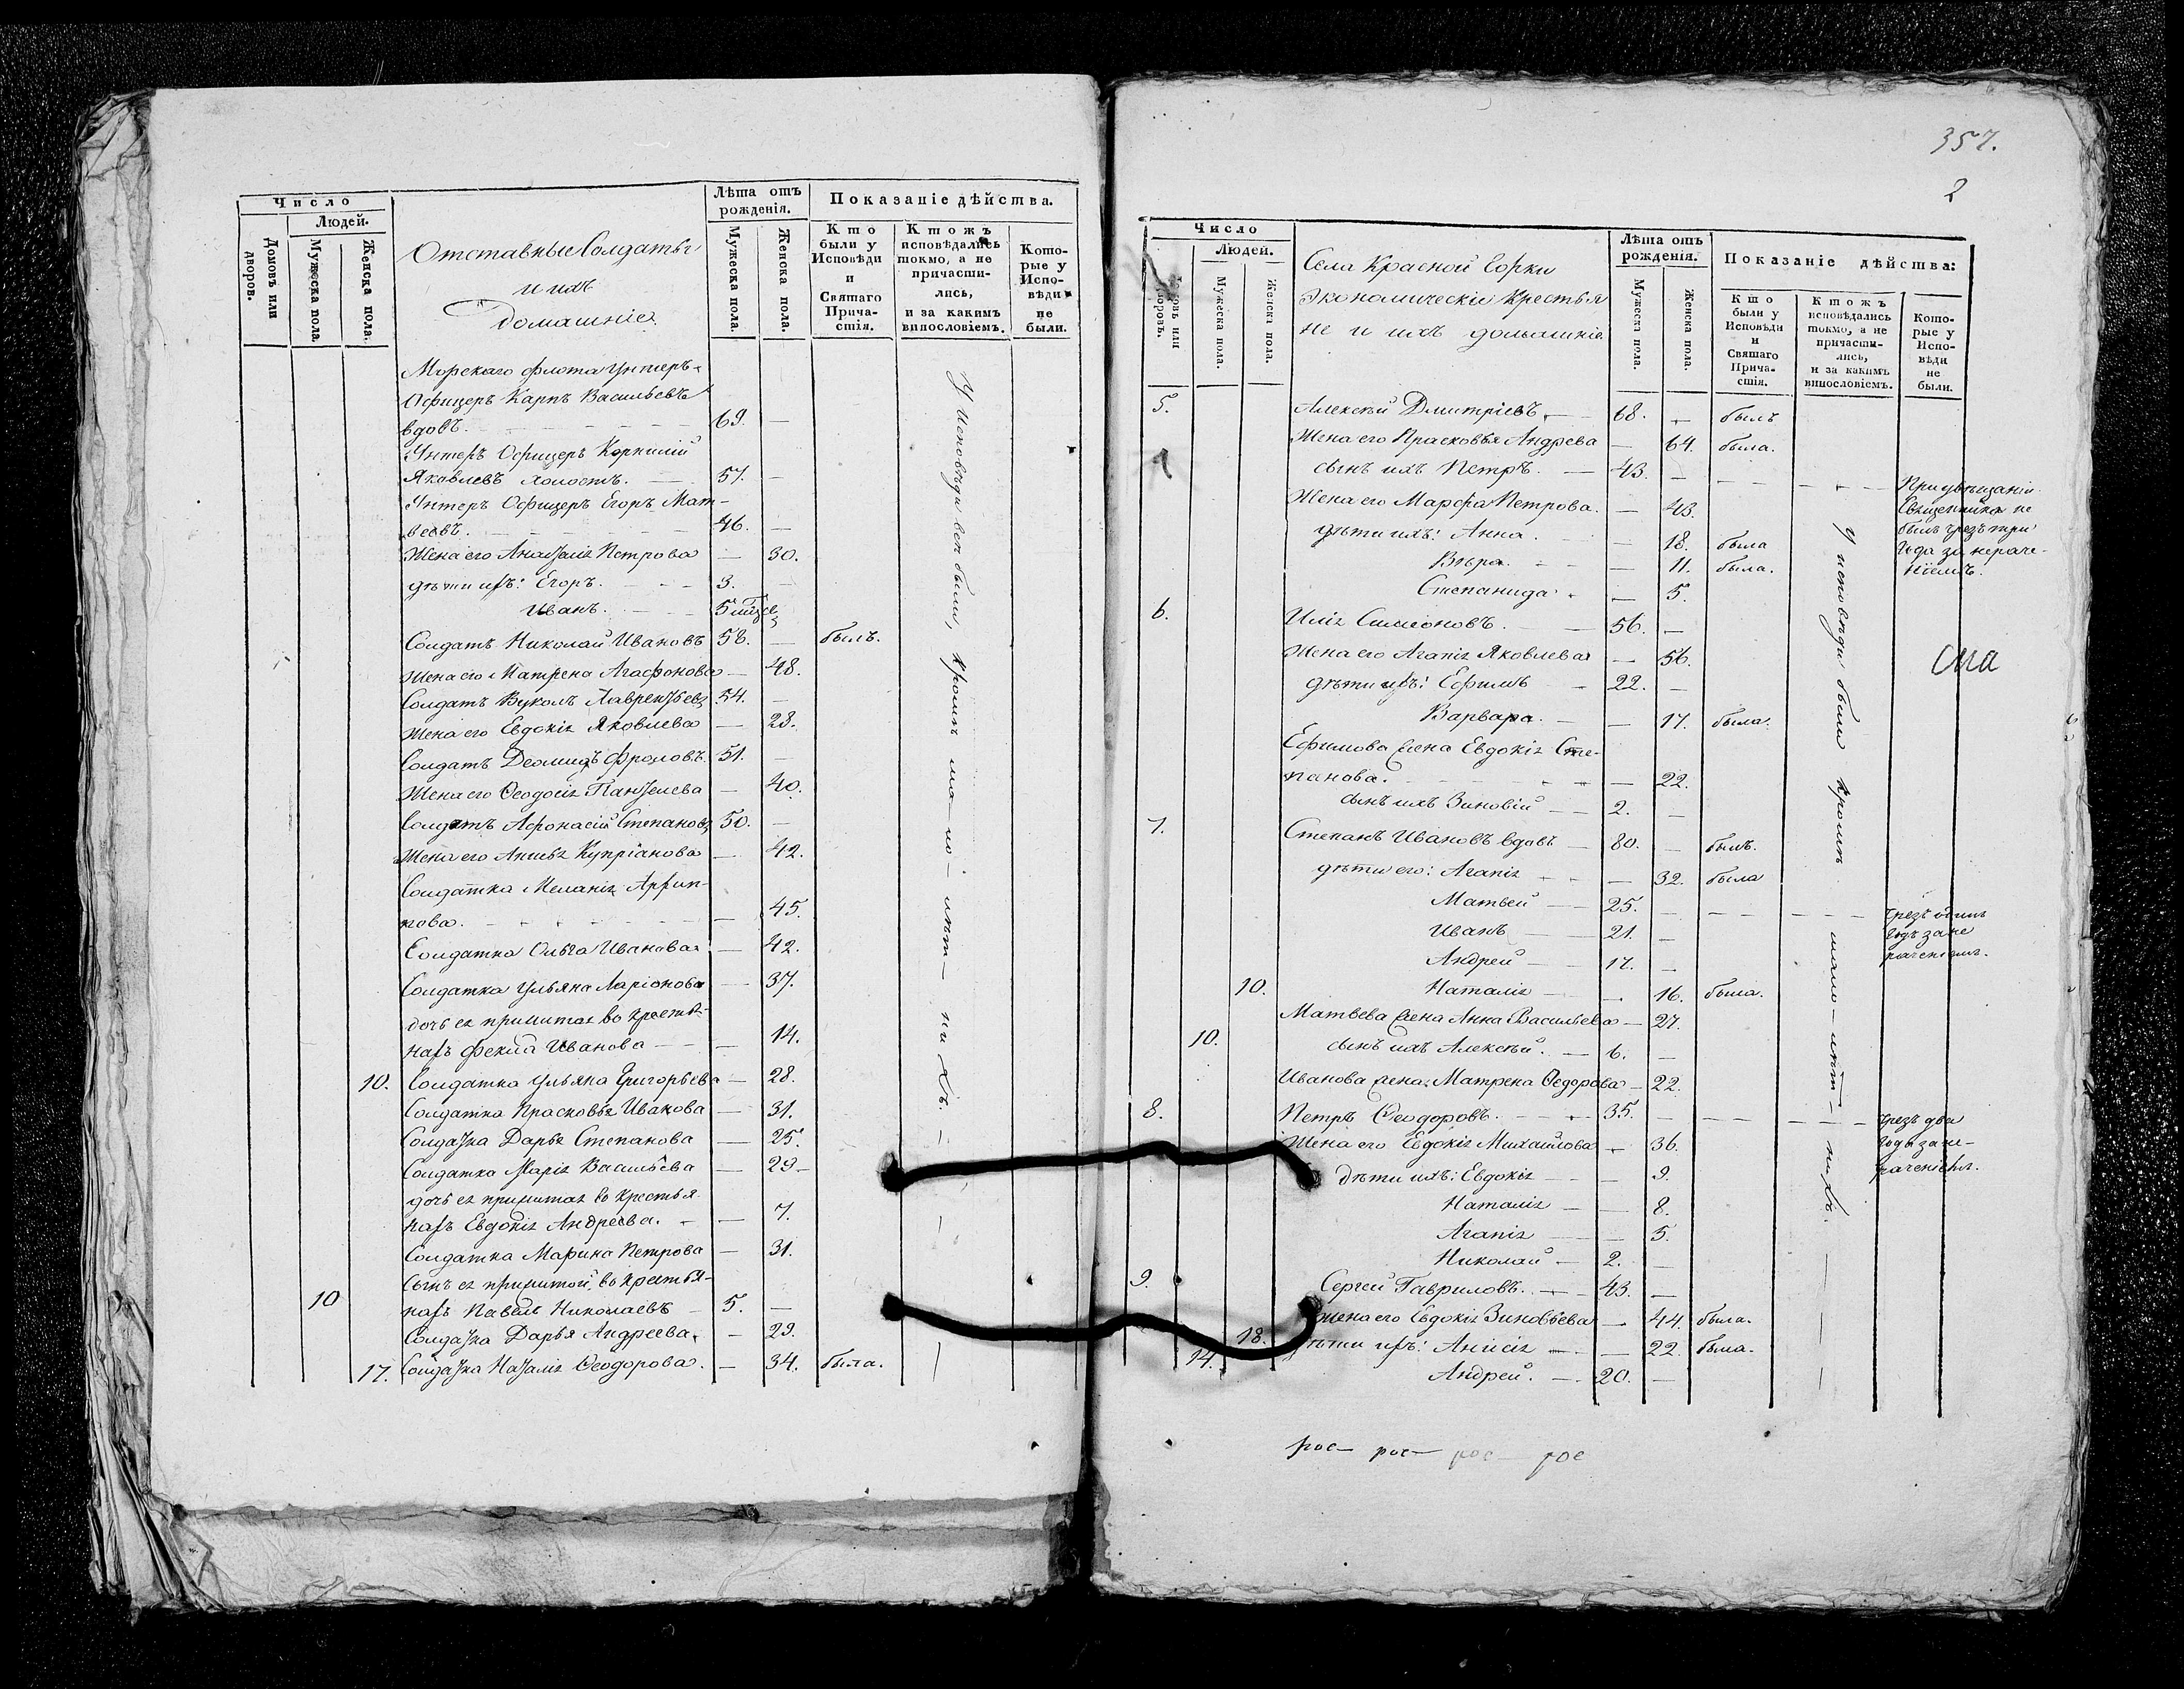 Число
Людей.
Домовъ или дворовъ.
Мужеска пола.
Женска пола.
Отставные Солдаты
и ихъ
Домашніе.
Лѣта отъ рожденія.
Мужеска пола.
Женска пола.
Показаніе дѣйства.
Кто были у Исповѣди и Святаго Причастія.
Ктожъ исповѣдались токмо, а не причастились, и за какимъ винословіемъ.
Которые у Исповѣди не были.
Морскаго флота Унтеръ-
Офицеръ Карпъ Васильевъ
вдовъ. 69. —
Унтеръ Офицеръ Корнилій
Яковлевъ холостъ. — 57. —
Унтеръ Офицеръ Егоръ Мат-
веевъ. 46. —
Жена его Анастасія Петрова — 30.
дѣти ихъ: Егоръ. 3. —
Иванъ. 5
Солдатъ Николай Ивановъ 58. — былъ.
Жена его Матрена Агафонова — 48.
Солдатъ Вуколъ Лаврентьевъ 54. —
Жена его Евдокія Яковлева — 28.
Солдатъ Деомидъ Фроловъ. 51. —
Жена его Ѳеодосія Пантелева — 40.
Солдатъ Афонасій Степановъ 50. —
Жена его Куприанова — 42.
Солдатка Меланія Архип-
пова. — 45.
Солдатка Ольга Иванова — 42.
Солдатка Ульяна Ларіонова — 37.
дочь ея прижитая во крестья-
нахъ Фекла Иванова — 14.
10. Солдатка Ульяна Григорьева — 28.
Солдатка Прасковья Иванова — 31.
Солдатка Дарья Степанова — 25.
Солдатка Марія Васильева — 29.
дочь ея прижитая во крестья-
нахъ Евдокія Андреева. — 7.
Солдатка Марина Петрова — 31.
Сынъ ея прижитой во крестья-
10 нахъ Павелъ Николаевъ 5. —
Солдатка Дарья Андреева. — 29.
17. Солдатка Наталія Ѳеодорова. — 34. была.
У исповѣди вси были, кромѣ мало-лѣт-нихъ.
357.
2
Число
Людей.
Домовъ или дворовъ.
Мужеска пола.
Женска пола.
Села Красной Горки
Экономическіе Крестья
не и ихъ домашніе.
Лѣта отъ рожденія.
Мужеска пола.
Женска пола.
Показаніе дѣйства:
Кто были у Исповѣди и Святаго Причастія.
Ктожъ исповѣдались токмо, а не причастились, и за какимъ винословіемъ.
Которые у Исповѣди не были.
5. Алексѣй Дмитріевъ. — 68. — былъ
Жена его Прасковья Андрева — 64. была.
сынъ ихъ Петръ. — 43. —
При увѣщаніи
Священника не
былъ чрезъ три
года за нераче-
ніемъ.
Жена его Марфа Петрова. — 43.
дѣти ихъ: Анна. — 18. была
Вѣра. — 11. была.
Степанида. — 5.
6. Илія Симеоновъ. — 56. —
Жена его Агапія Яковлевая — 56.
дѣти ихъ: Ефимъ 22. —
Варвара. — 17. была.
Ефимова жена Евдокія Сте-
панова. — 22.
сынъ ихъ Зиновій — 2. —
7. Степанъ Ивановъ вдовъ — 80. — былъ.
дѣти его: Агапія — 32. была
Матвей — 25. —
чрезъ одинъ
годъ за не
раченіемъ.
Иванъ — 21. —
Андрей — 17. —
10. Наталія — 16. была.
Матвева жена Анна Васильева — 27.
10. сынъ ихъ Алексѣй. — 6. —
Иванова жена Матрена Ѳедорова — 22.
8. Петръ Ѳеодоровъ. 35. —
чрезъ два
года за не-
раченіемъ.
Жена его Евдокія Михайлова — 36.
дѣти ихъ: Евдокія — 9.
Наталія — 8.
Агапія — 5.
Николай — 2. —
9. Сергей Гавриловъ. — 43. —
Жена его Евдокія Зиновьева — 44. была.
18. дѣти ихъ: Анисія — 22. была.
14. Андрей. — 20. —
У исповѣди были кромѣ мало-лѣт-нихъ.
рос— рос— рос— рос